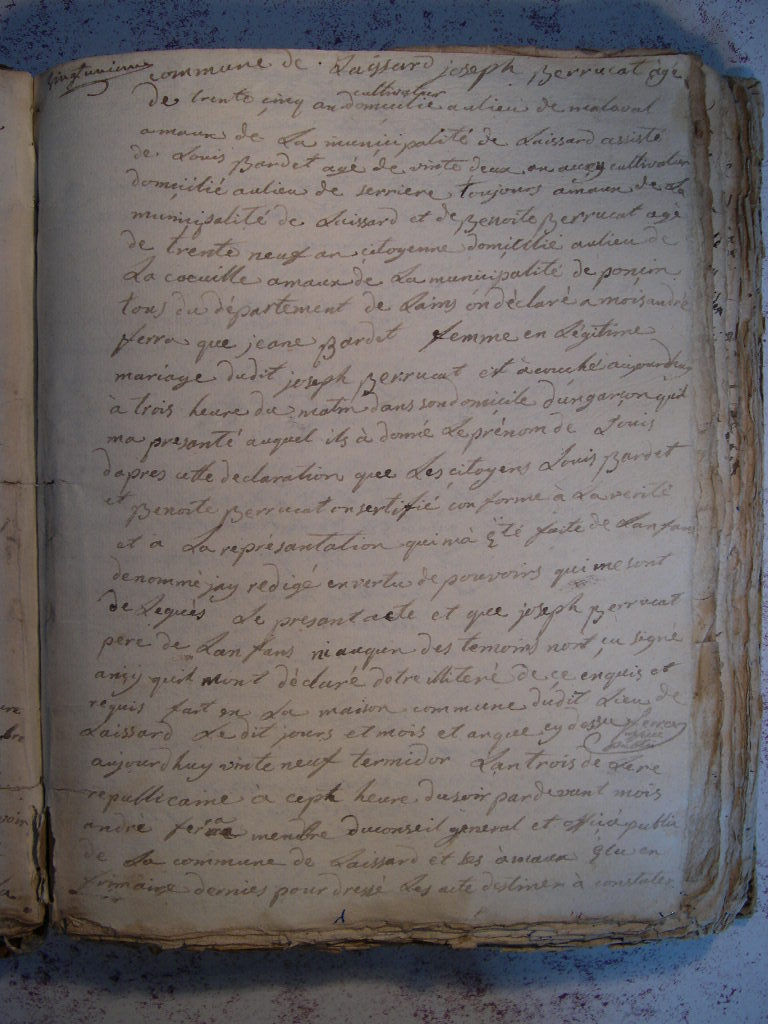 commune de Laissard joseph Berrucat agé
cultivateur
de trente cinq an domicilié au lieu de malaval
amaux de La municipalité de Laissard assisté
de Louis Bardet agé de vinte deux an aussy cultivatur
domicilié au lieu de serriere toujours amaux de La
municipalité de Laissard et de Benoite Berrucat agé
de trente neuf an citoyenne domicilié au lieu de
La coeuille amaux de La municipalité de poncin
tous du département de Lains on déclaré a mois andré
ferra que jeane Bardet femme en Légitime
mariage dudit joseph Berrucat et à couché aujourdhuy
à trois heure du matin dans son domicile dungarçon quil
ma presanté auquel ils à donné Le prénom de Louis
dapres cette declaration que Les citoyens Louis Bardet
et Benoite Berrucat on sertifié conforme à La verité
et a La représantation qui mà été faite de Lanfans
denommé jay redigé en vertu de pouvoirs qui me sont
deLegués Le presant acte et que joseph Berrucat
pere de Lanfans ni auqun des temoins nont su signé
ansy quil mont déclaré detre illiteré de ce enquis et
requis fait en La maison commune dudit Lieu de
Laissard Le dit jours et mois et an que cy dessu ferra
aujourdhuy vinte neuf termidor Lan trois de Lere
republicaine à ceph heure du soir par devant mois
andré ferra membre du conseil general et officié public
de La commune de Laissard et ses àmaux élu en
frimaire dernies pour dressé Les acte destiner à constater